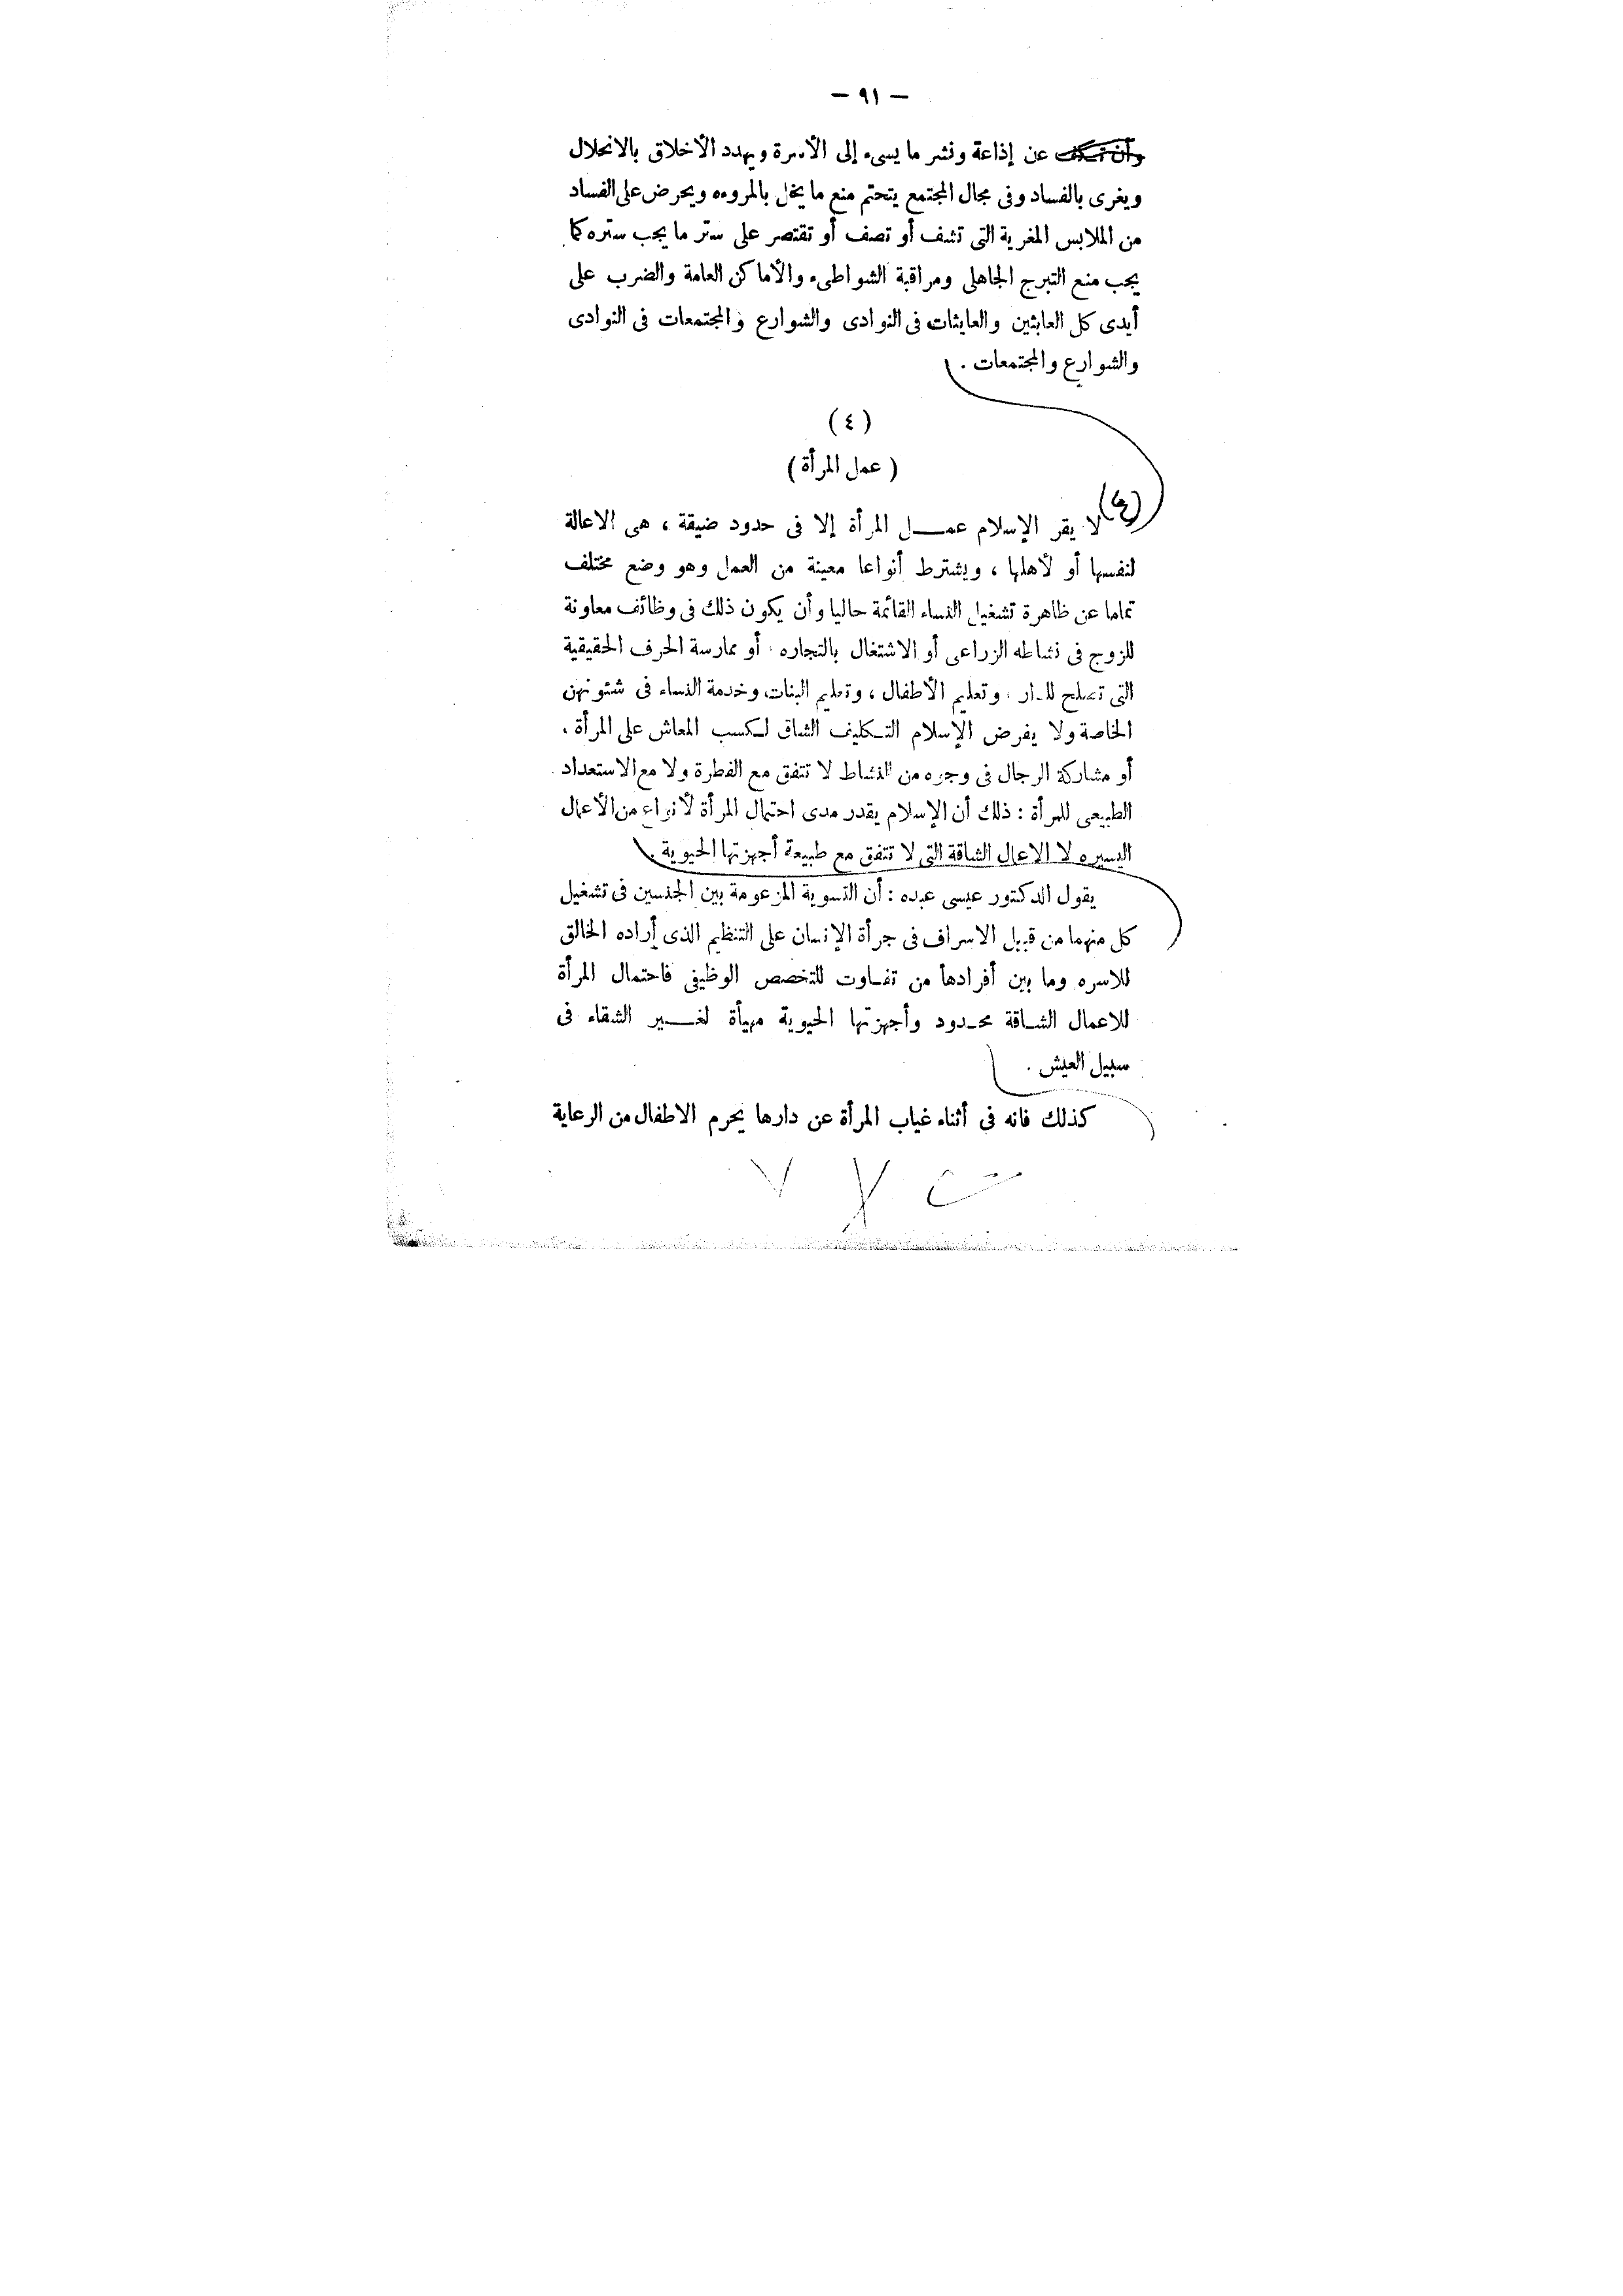 — ٩١ —
وأن تكف عن إذاعة ونشر ما يسىء إلى الأسرة ويهدد الأخلاق بالانحلال
ويغرى بالفساد وفى مجال المجتمع يتحتم منع ما يخل بالمروءه ويحرض على الفساد
من الملابس المغرية التى تشف أو تصف أو تقتصر على ستر ما يجب ستره كما
يجب منع التبرج الجاهلى ومراقبة الشواطىء والأماكن العامة والضرب على
أيدى كل العابثين والعابثات فى النوادى والشوارع والمجتمعات فى النوادى
والشوارع والمجتمعات .
( ٤ )
( عمل المرأة )
لا يقر الإسلام عمـــل المرأة إلا فى حدود ضيقة ، هى الاعالة
لنفسها أو لأهلها ، ويشترط أنواعا معينة من العمل وهو وضع مختلف
تماما عن ظاهرة تشغيل النساء القائمة حاليا وأن يكون ذلك فى وظائف معاونة
للزوج فى نشاطه الزراعى أو الاشتغال بالتجاره ، أو ممارسة الحرف الحقيقية
التى تصلح للدار ، وتعليم الأطفال ، وتعليم البنات وخدمة النساء فى شئونهن
الخاصة ولا يفرض الإسلام التـكليف الشاق لـكسب المعاش على المرأة .
أو مشاركة الرجال فى وجوه من النشاط لا تتفق مع الفطرة ولا مع الاستعداد
الطبيعى للمرأة : ذلك أن الإسلام يقدر مدى احتمال المرأة لأنواع من الأعمال
اليسيره لا الاعمال الشاقة التى لا تتفق مع طبيعة أجهزتها الحيوية .
يقول الدكتور عيسى عبده : أن التسوية المزعومة بين الجنسين فى تشغيل
كل منهما من قبيل الاسراف فى جرأة الإنسان على التنظيم الذى أراده الخالق
للاسره وما بين أفرادها من تفـاوت للتخصص الوظيفى فاحتمال المرأة
للاعمال الشـاقة محـدود وأجهزتها الحيوية مهيأة لغـــير الشقاء فى
سبيل العيش .
كذلك فانه فى أثناء غياب المرأة عن دارها يحرم الاطفال من الرعاية